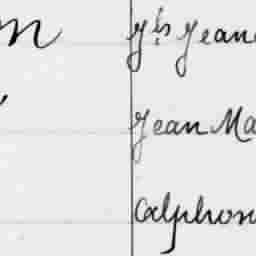 n Gls Jean
Jean Ma
Alphons